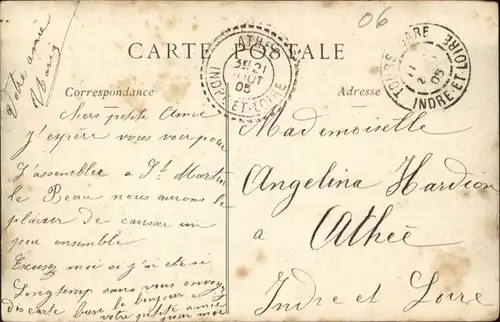 06
CARTE POSTALE
Correspondance
Adresse
ATHÉE
21
AOUT
05
INDRE-ET-LOIRE
TOURS GARE
05
INDRE-ET-LOIRE
Votre amie
Chère petite Amie
J'espère vous voir pour
L'assemblée a St Martin
le Beau nous aurons le
plaisir de causser un
peu ensemble
Excusez moi si j'ai été si
Longtemp sans vous envoyé
des carte bonjour a
votre petite amie pour moi
Mademoiselle
Angelina Hardion
a
Athée
Indre et Loire